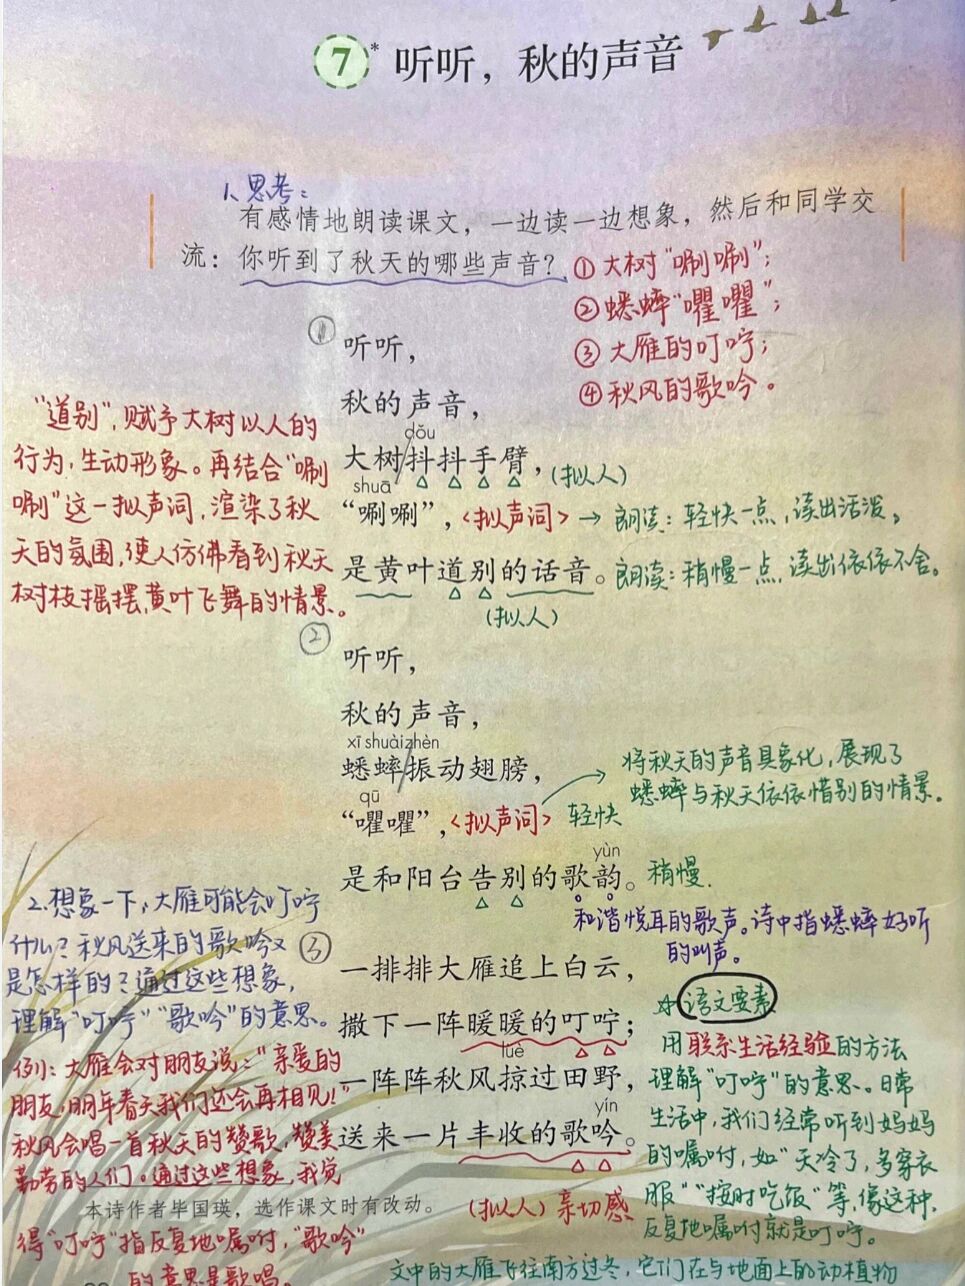 7* 听听，秋的声音
1、思考：
有感情地朗读课文，一边读一边想象，然后和同学交
流：你听到了秋天的哪些声音？
①大树“唰唰”；
②蟋蟀“㘗㘗”；
③大雁的叮咛；
④秋风的歌吟。
①
听听，
秋的声音，
dǒu
大树抖抖手臂，(拟人)
shuā
“唰唰”，<拟声词>→朗读：轻快一点，读出活泼。
是黄叶道别的话音。朗读：稍慢一点，读出依依不舍。
(拟人)
“道别”，赋予大树以人的
行为，生动形象。再结合“唰
唰”这一拟声词，渲染了秋
天的氛围，使人仿佛看到秋天
树枝摇摆，黄叶飞舞的情景。
②
听听，
秋的声音，
xī shuài zhèn
蟋蟀振动翅膀，
qū
“㘗㘗”，<拟声词> 轻快
将秋天的声音具象化，展现了
蟋蟀与秋天依依惜别的情景。
yùn
是和阳台告别的歌韵。稍慢.
和谐悦耳的歌声。诗中指蟋蟀好听
的叫声。
2.想象一下，大雁可能会叮咛
什么？秋风送来的歌吟又
是怎样的？通过这些想象，
理解“叮咛”“歌吟”的意思。
例：大雁会对朋友说：“亲爱的
朋友，明年春天我们还会再相见！”
秋风会唱一首秋天的赞歌，赞美
勤劳的人们。通过这些想象，我觉
得“叮咛”指反复地嘱咐，“歌吟”
的意思是歌唱。
③
一排排大雁追上白云，
撒下一阵暖暖的叮咛；
lüè
一阵阵秋风掠过田野，
yín
送来一片丰收的歌吟。
(拟人)亲切感
☆语文要素
用联系生活经验的方法
理解“叮咛”的意思。日常
生活中，我们经常听到妈妈
的嘱咐，如“天冷了，多穿衣
服”“按时吃饭”等，像这种，
反复地嘱咐就是叮咛。
本诗作者毕国瑛，选作课文时有改动。
文中的大雁飞往南方过冬，它们在与地面上的动植物